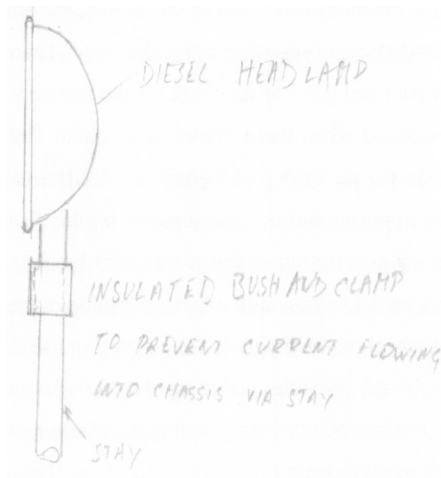 DIESEL HEADLAMP
INSULATED BUSH AND CLAMP
TO PREVENT CURRENT FLOWING
INTO CHASSIS VIA STAY
STAY